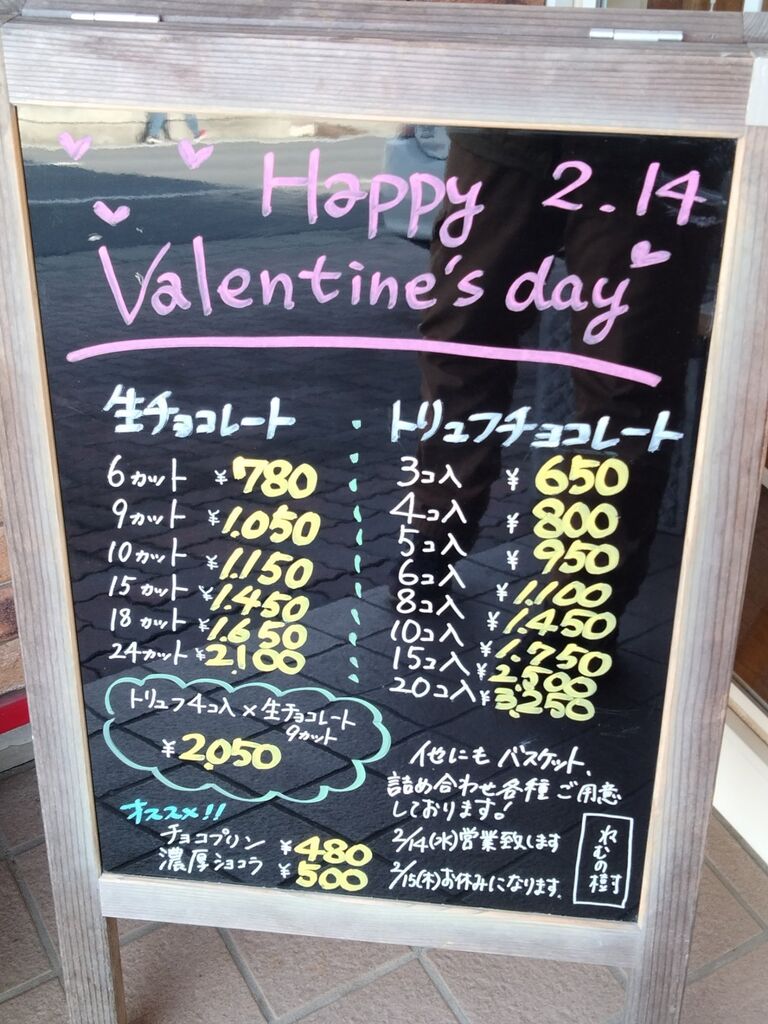 Happy 2.14
Valentine's day
生チョコレート
6カット ¥780
9カット ¥1.050
10カット ¥1.150
15カット ¥1.450
18カット ¥1.650
24カット ¥2.100
トリュフチョコレート
3コ入 ¥650
4コ入 ¥800
5コ入 ¥950
6コ入 ¥1.100
8コ入 ¥1.450
10コ入 ¥1.750
15コ入 ¥2.500
20コ入 ¥3.250
トリュフ4コ入×生チョコレート
9カット
¥2.050
オススメ!!
チョコプリン ¥480
濃厚ショコラ ¥500
他にもバスケット、
詰め合わせ各種ご用意
しております!
2/14(水)営業致します
2/15(木)お休みになります.
ねむの樹